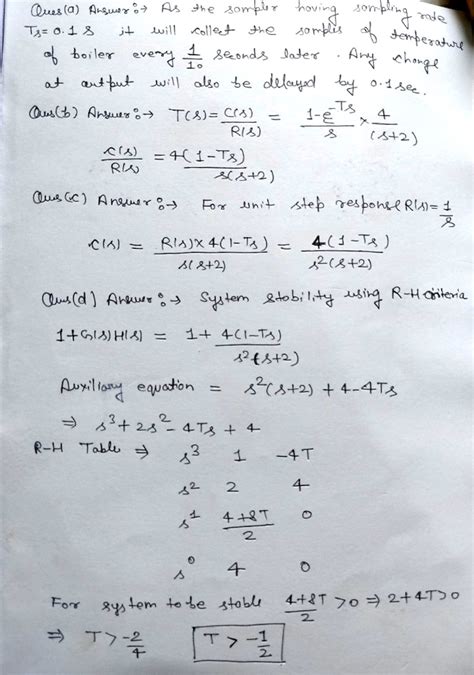 Ques(a) Answer :→ As the sampler having sampling rate
Ts = 0.1 s it will collect the samples of temperature
of boiler every 1/10 seconds later. Any change
at output will also be delayed by 0.1 sec.
Ques(b) Answer :→ T(s) = C(s)/R(s) = (1-e^-Ts)/s × 4/(s+2)
C(s)/R(s) = 4(1-Ts)/s(s+2)
Ques(c) Answer :→ For unit step response R(s) = 1/s
C(s) = R(s)×4(1-Ts)/s(s+2) = 4(1-Ts)/s²(s+2)
Ques(d) Answer :→ System stability using R-H criteria
1+G(s)H(s) = 1 + 4(1-Ts)/s²(s+2)
Auxillary equation = s²(s+2) + 4-4Ts
⇒ s³ + 2s² - 4Ts + 4
R-H Table ⇒ s³ 1 -4T
s² 2 4
s¹ (4+8T)/2 0
s⁰ 4 0
For system to be stable (4+8T)/2 > 0 ⇒ 2+4T>0
⇒ T > -2/4 T > -1/2